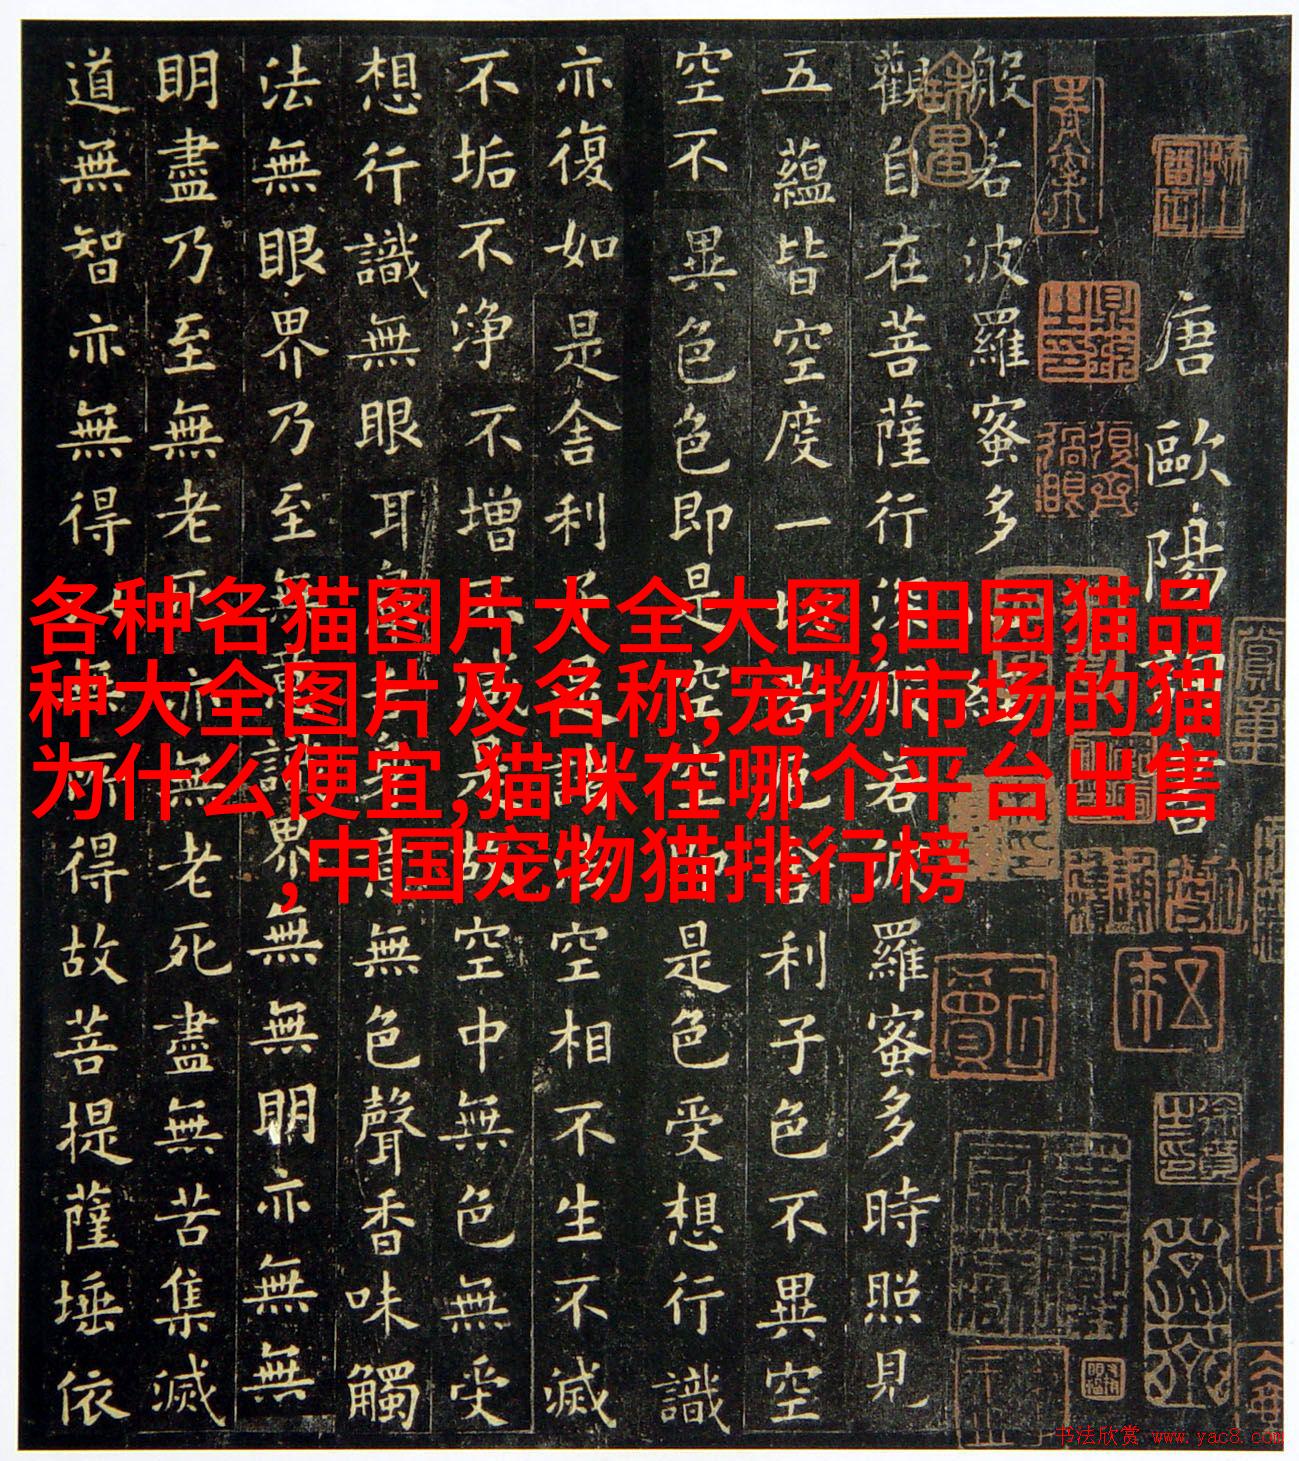 各种名猫图片大全大图,田园猫品
种大全图片及名称,宠物市场的猫
为什么便宜,猫咪在哪个平台出售
,中国宠物猫排行榜
唐歐陽詢書
般若波羅蜜多心經
觀自在菩薩行深般若波羅蜜多時照見
五蘊皆空度一切苦厄舍利子色不異空
空不異色色即是空空即是色受想行識
亦復如是舍利子是諸法空相不生不滅
不垢不淨不增不減是故空中無色無受
想行識無眼耳鼻舌身意無色聲香味觸
法無眼界乃至無意識界無無明亦無無
明盡乃至無老死亦無老死盡無苦集滅
道無智亦無得以無所得故菩提薩埵依
书法欣赏 www.yac8.com